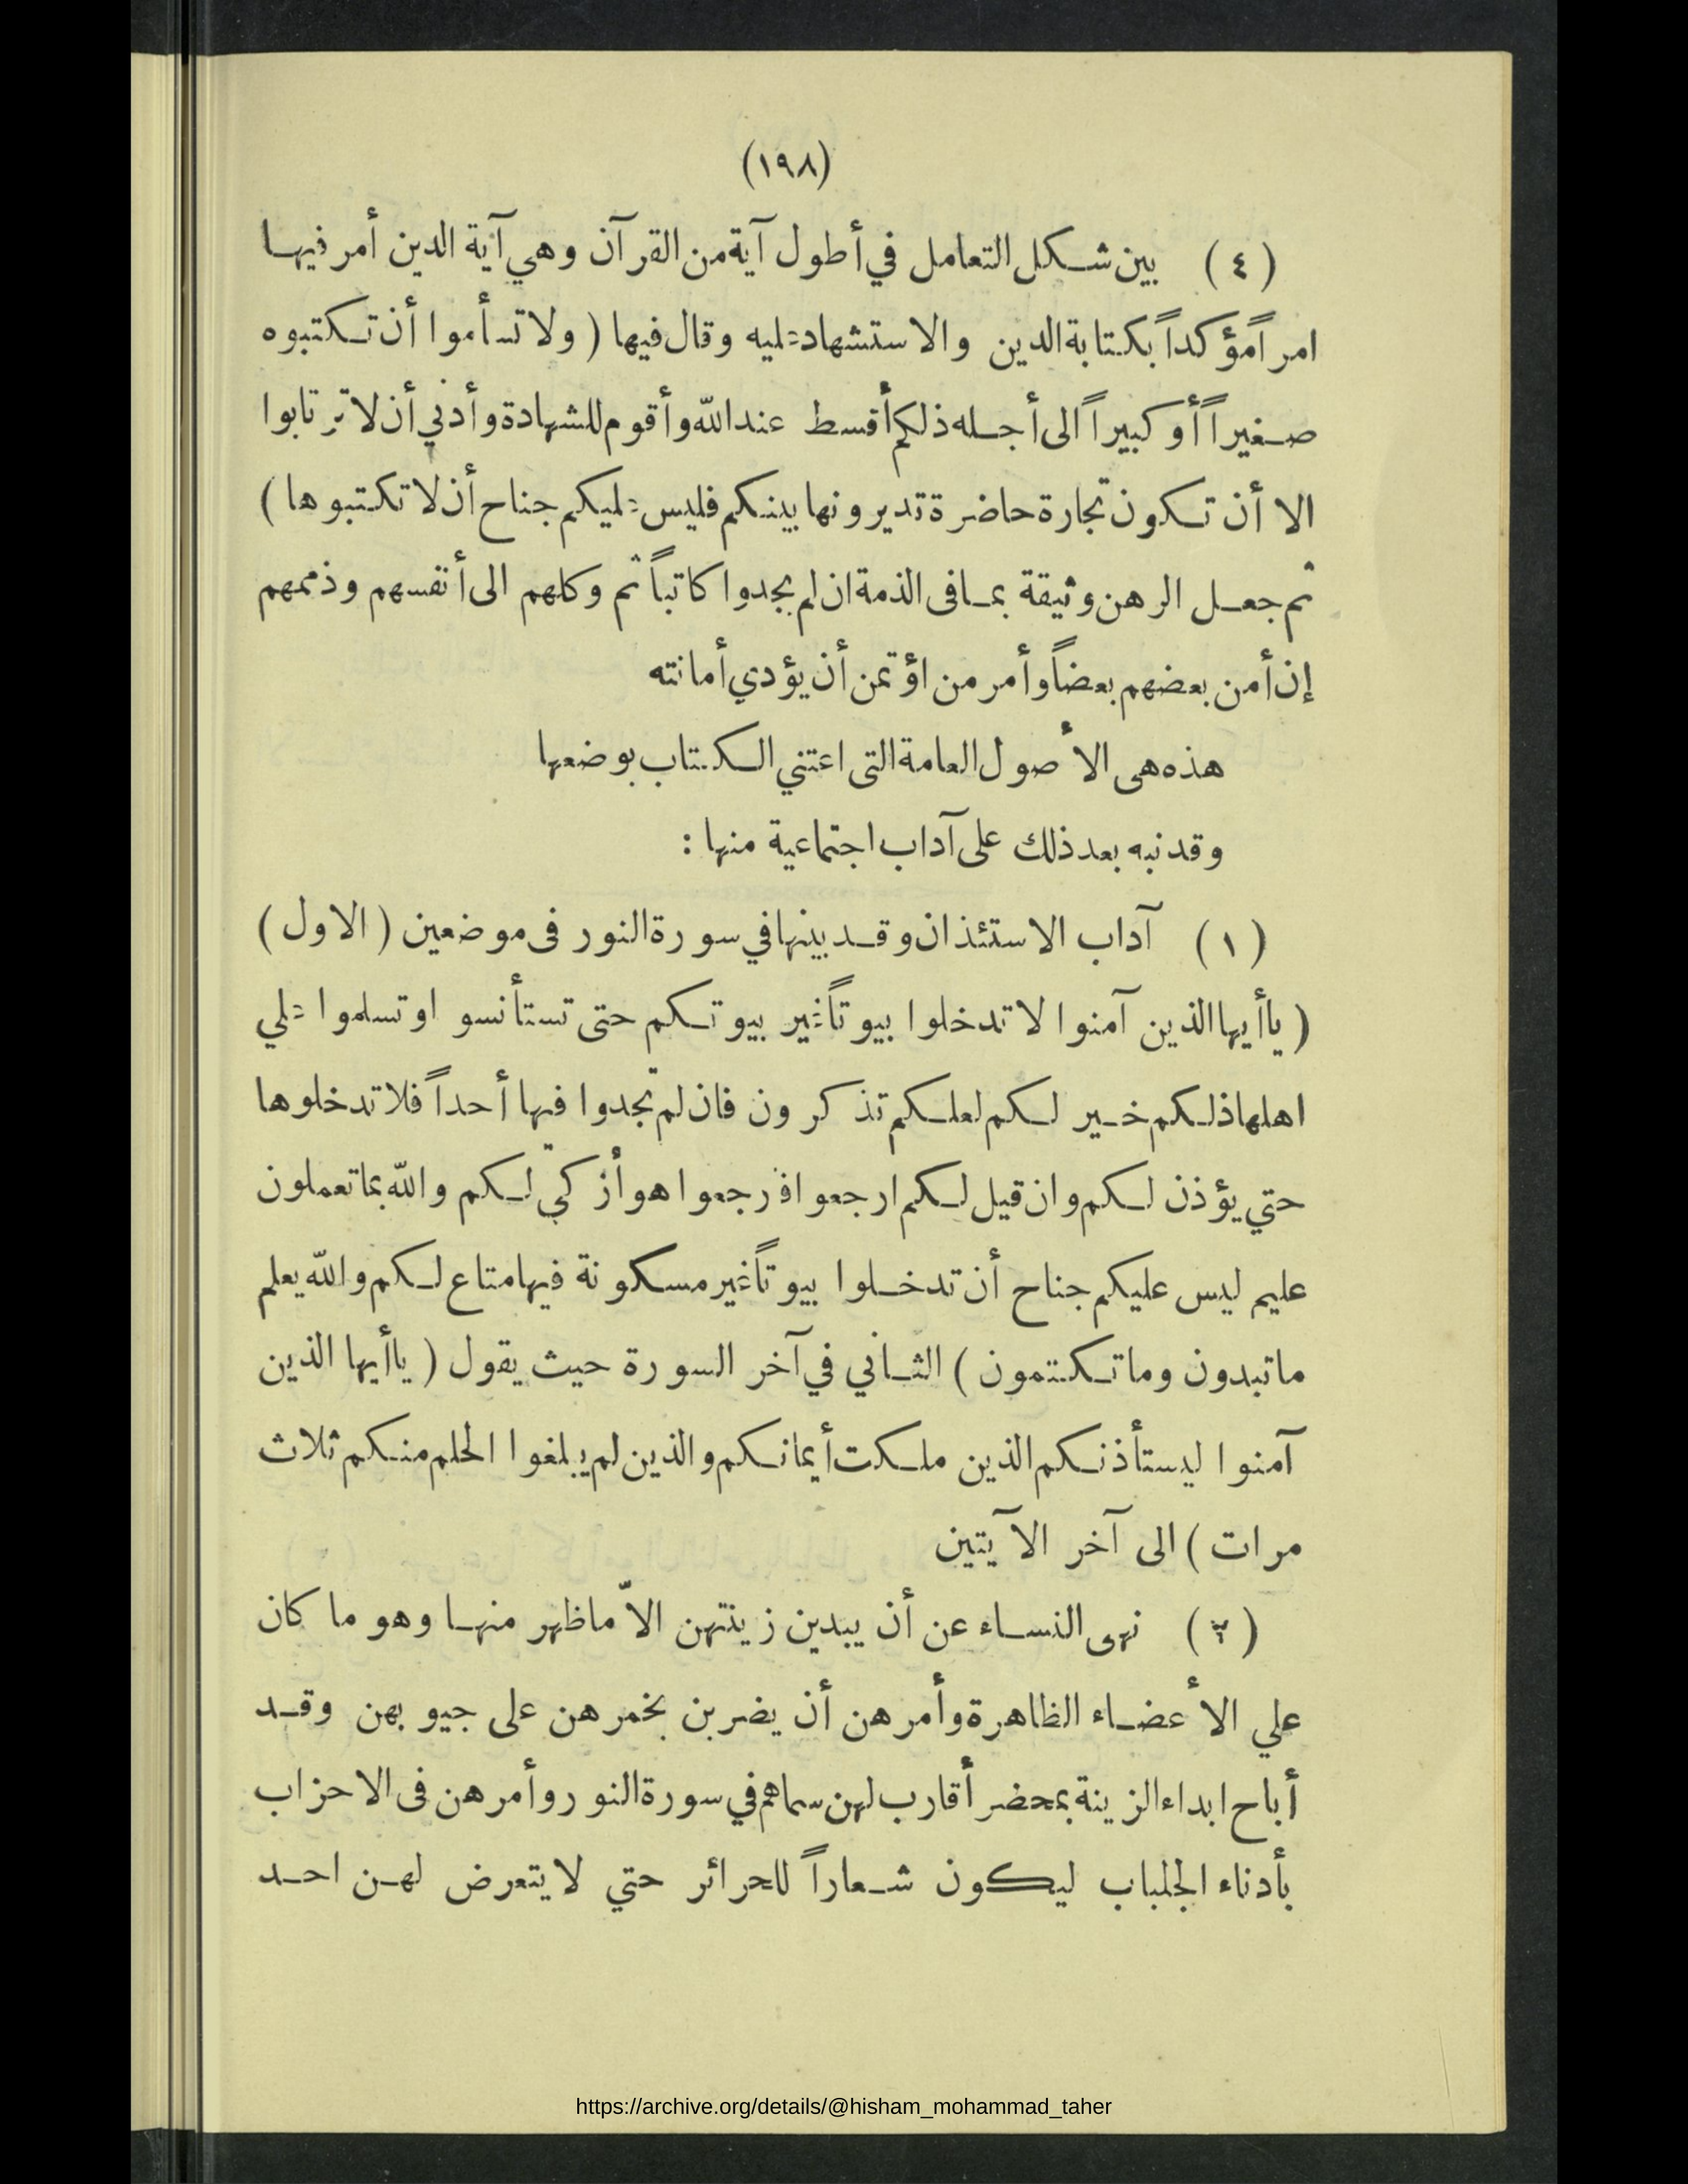 (١٩٨)
(٤) بين شكل التعامل في أطول آية من القرآن وهي آية الدين أمر فيها
امراً مؤكداً بكتابة الدين والاستشهاد عليه وقال فيها (ولا تسأموا أن تكتبوه
صغيراً أو كبيراً الى أجله ذلكم أقسط عند الله وأقوم للشهادة وأدني أن لا ترتابوا
الا أن تكون تجارة حاضرة تديرونها بينكم فليس عليكم جناح أن لا تكتبوها)
ثم جعل الرهن وثيقة بما فى الذمة ان لم يجدوا كاتباً ثم وكلهم الى أنفسهم وذممهم
إن أمن بعضهم بعضاً وأمر من اؤتمن أن يؤدي أمانته
هذه هى الأصول العامة التى اعتني الكتاب بوضعها
وقد نبه بعد ذلك على آداب اجتماعية منها :
(١) آداب الاستئذان وقد بينها في سورة النور فى موضعين (الاول)
(ياأيها الذين آمنوا لا تدخلوا بيوتاً غير بيوتكم حتى تستأنسو اوتسلموا علي
اهلها ذلكم خير لكم لعلكم تذكرون فان لم تجدوا فيها أحداً فلا تدخلوها
حتي يؤذن لكم وان قيل لكم ارجعوا فرجعوا هو أزكي لكم والله بما تعملون
عليم ليس عليكم جناح أن تدخلوا بيوتاً غير مسكونة فيها متاع لكم والله يعلم
ما تبدون وما تكتمون) الثاني في آخر السورة حيث يقول (ياأيها الذين
آمنوا ليستأذنكم الذين ملكت أيمانكم والذين لم يبلغوا الحلم منكم ثلاث
مرات) الى آخر الآيتين
(٢) نهى النساء عن أن يبدين زينتهن الاّ ما ظهر منها وهو ما كان
علي الأعضاء الظاهرة وأمرهن أن يضربن بخمرهن على جيوبهن وقد
أباح ابداء الزينة بمحضر أقارب لهن سماهم في سورة النور وأمرهن فى الاحزاب
بأدناء الجلباب ليكون شعاراً للحرائر حتي لا يتعرض لهن احد
https://archive.org/details/@hisham_mohammad_taher